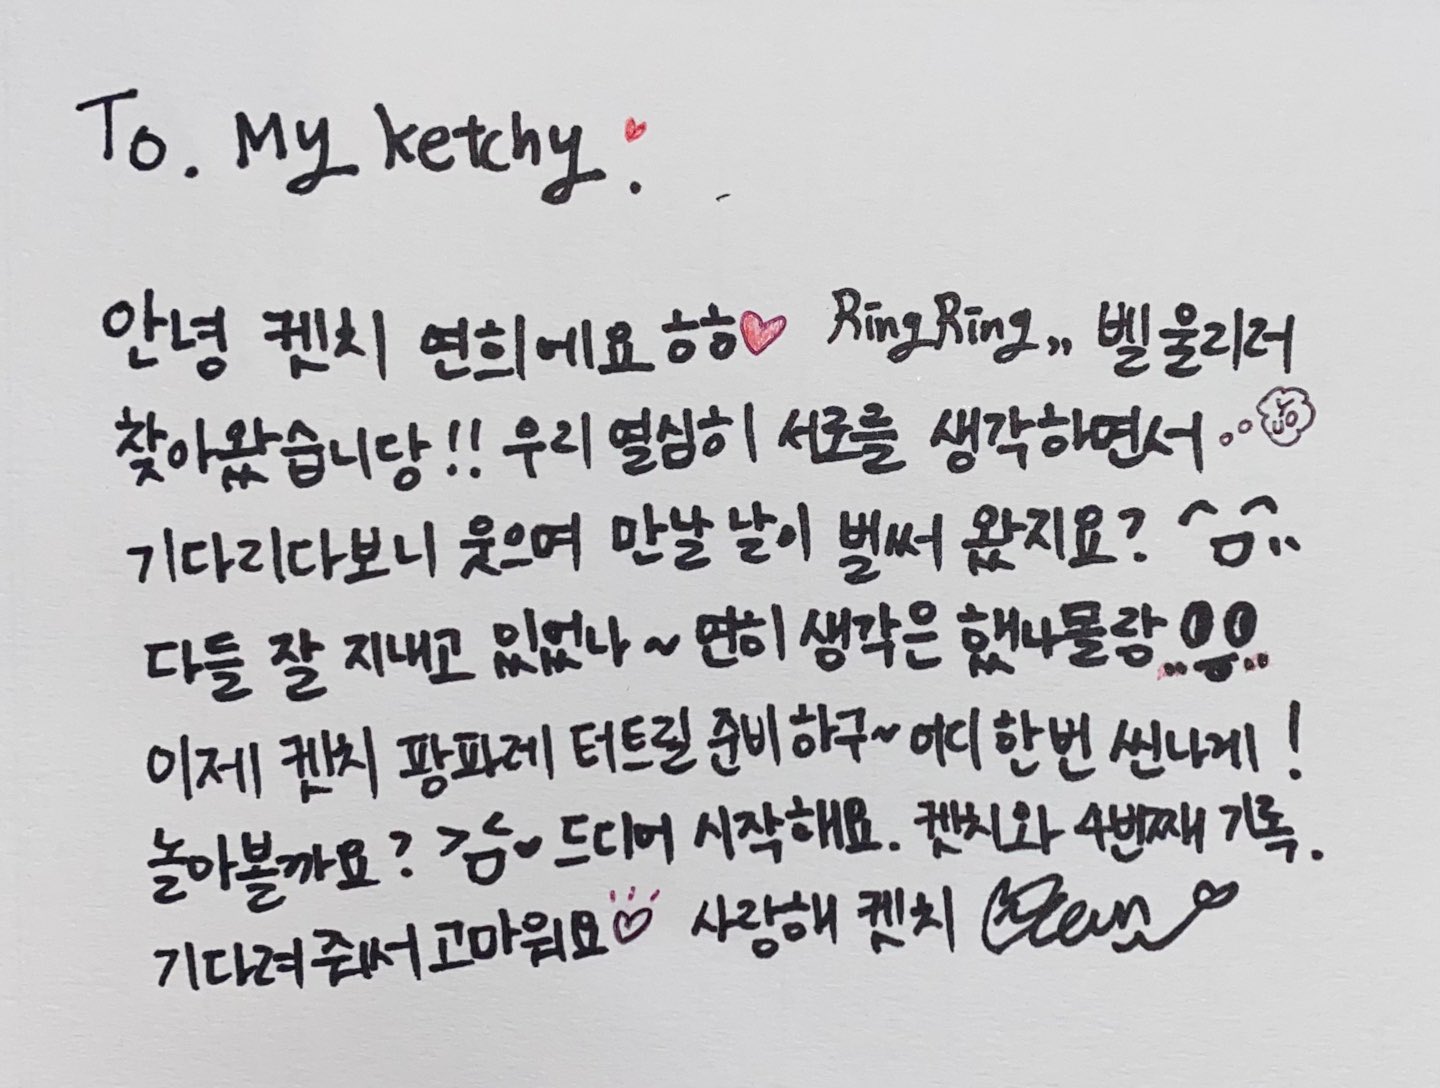 To. My ketchy.
안녕 켓치 연희에요ㅎㅎ RingRing,, 벨울리러
찾아왔습니당!! 우리 열심히 서로를 생각하면서..
기다리다보니 웃으며 만날날이 벌써 왔지요? ^ㅁ^..
다들 잘 지내고 있었나~ 연히 생각은 했나몰랑..
이제 켓치 팡파레 터트릴 준비하구~ 어디한번 씬나게!
놀아볼까요? >ㅁ< 드디어 시작해요. 켓치와 4번째 기록.
기다려줘서 고마워요 사랑해 켓치